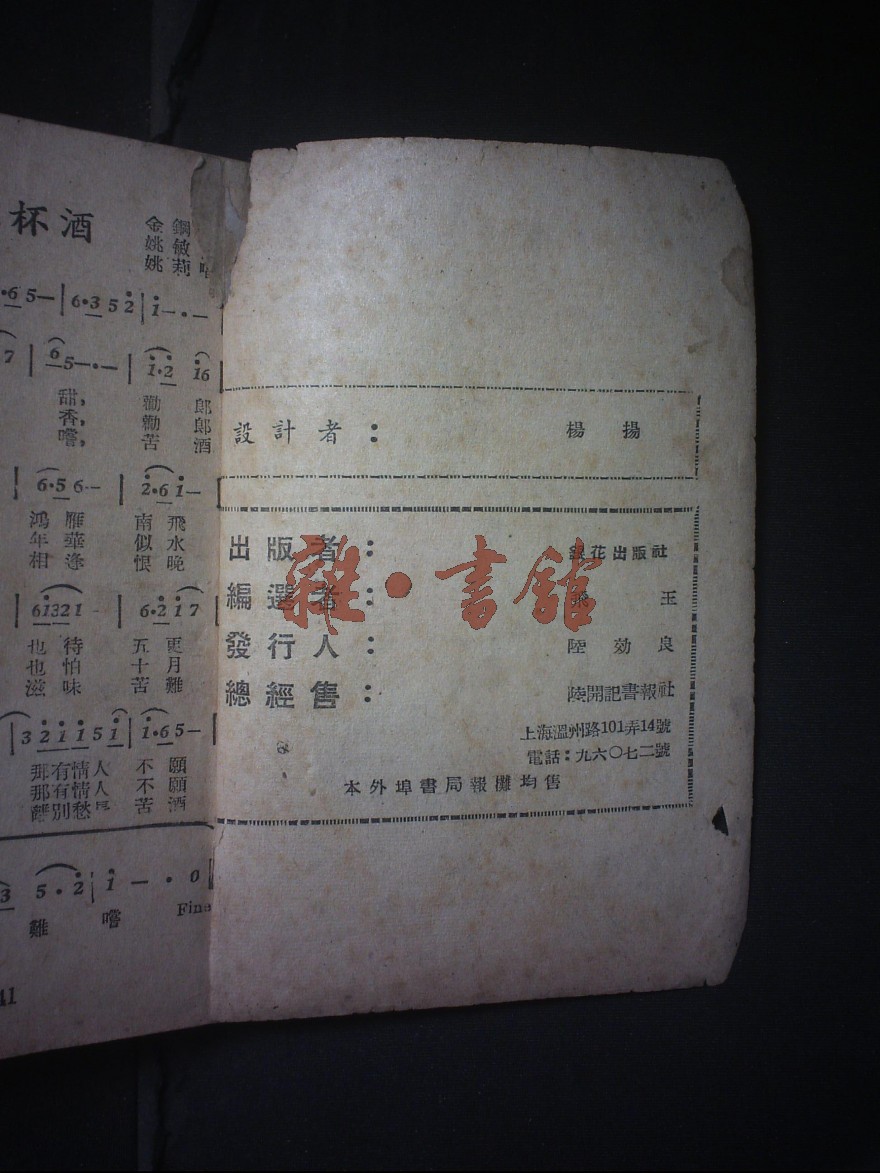 杯酒
金鋼
姚敏
姚莉
6 5— | 6·3 5 2 | i—·—
7 | 6 5—·— | i·2 i6
甜，勸郎
香，勸郎
嚐，苦酒
6·5 6·— | 2·6 i—
鴻雁南飛
年華似水
相逢恨晚
6 i 3 2 i | 6·2 i 7
也待五更
也怕十月
滋味苦難
| 3 2 i i 5 i | i·6 5—
那有情人不願
那有情人不願
離別愁 苦酒
3 5·2 | i —·0
難嚐 Fine
41
設計者： 楊揚
出版者： 銀花出版社
編選者： 王
發行人： 陸効良
總經售： 陸開記書報社
上海溫州路101弄14號
電話：九六〇七二號
本外埠書局報攤均售
雜·書館